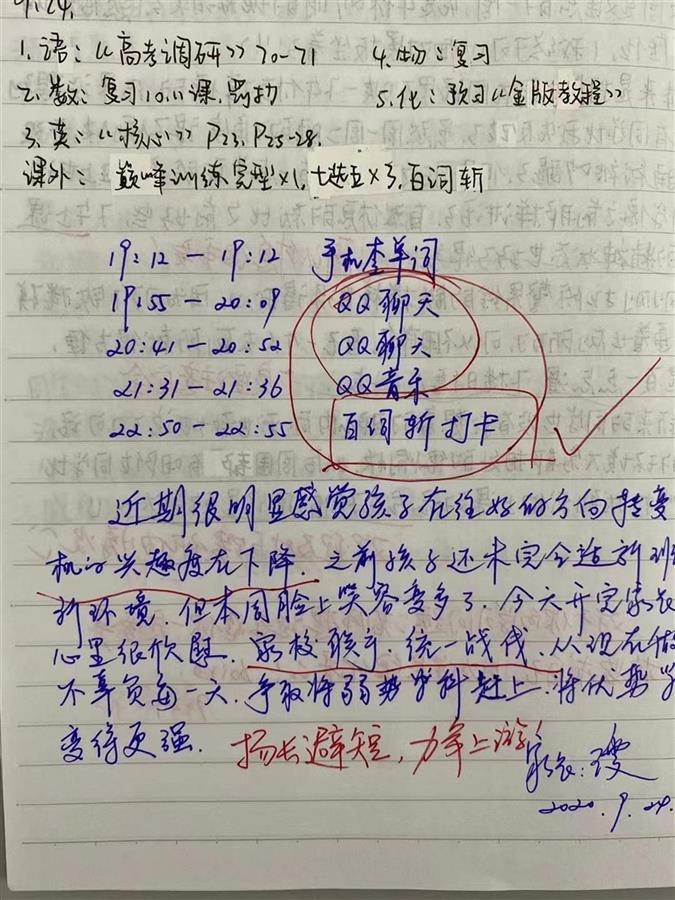 9.24.
1.语：《高考调研》70-71
4.物：复习
2.数：复习10.11课
5.化：预习《金版教程》
3.英：《核心》P23. P25-28.
课外：巅峰训练完型×1，七选五×3，百词斩
19:12 — 19:12 手机查单词
19:55 — 20:09 QQ聊天
20:41 — 20:52 QQ聊天
21:31 — 21:36 QQ音乐
22:50 — 22:55 百词斩打卡
近期很明显感觉孩子在往好的方向转变
机的兴趣度在下降. 之前孩子还未完全适新班
新环境. 但本周脸上笑容变多了. 今天开完家长
心里很欣慰. 家校联手. 统一战线. 从现在做
不辜负每一天. 争取将弱势学科赶上. 将优势学
变得更强.
扬长避短，力争上游！
家长:
2020.9.24.